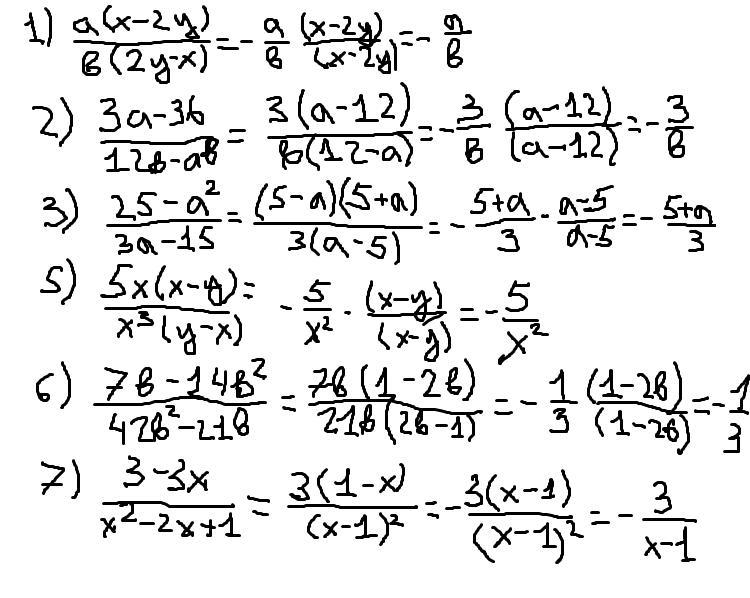 1) a(x-2y)/в(2y-x) = - a/в (x-2y)/(x-2y) = - a/в
2) 3a-36/12в-aв = 3(a-12)/в(12-a) = - 3/в (a-12)/(a-12) = - 3/в
3) 25-a²/3a-15 = (5-a)(5+a)/3(a-5) = - 5+a/3 · a-5/a-5 = - 5+a/3
5) 5x(x-y)/x³(y-x) = - 5/x² · (x-y)/(x-y) = - 5/x²
6) 7в-14в²/42в²-21в = 7в(1-2в)/21в(2в-1) = - 1/3 (1-2в)/(1-2в) = - 1/3
7) 3-3x/x²-2x+1 = 3(1-x)/(x-1)² = - 3(x-1)/(x-1)² = - 3/x-1